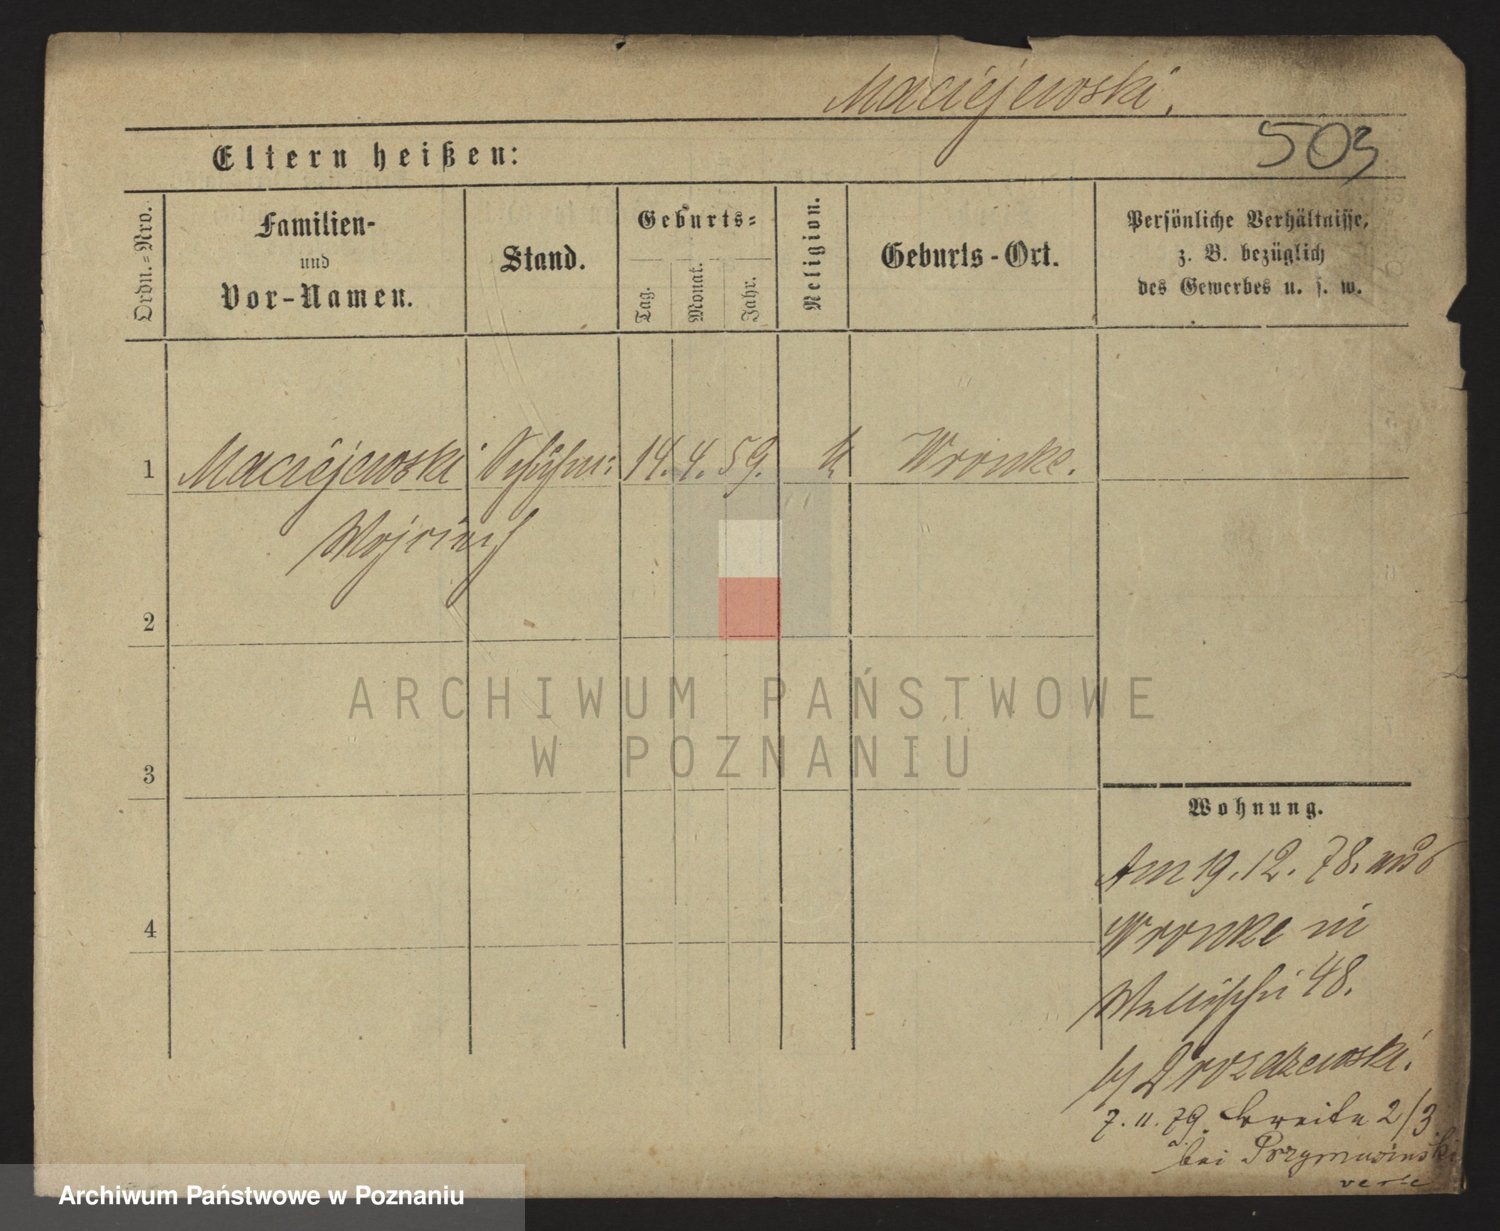 Maciejewski.
503
Eltern heißen:
Ordn.-Nro.
Familien-
und
Vor-Namen.
Stand.
Geburts-
Tag.
Monat.
Jahr.
Religion.
Geburts-Ort.
Persönliche Verhältnisse,
z. B. bezüglich
des Gewerbes u. s. w.
1 Maciejewski 14. 4. 59. k Wronke.
Wojciech
2
3
4
Wohnung.
Am 19. 12. 78. aus
Wronke in
Wallischei 48.
by Drozdzewski.
7. 11. 79. Breite 2/3
bei Przymusinski
verte
ARCHIWUM PAŃSTWOWE
W POZNANIU
Archiwum Państwowe w Poznaniu